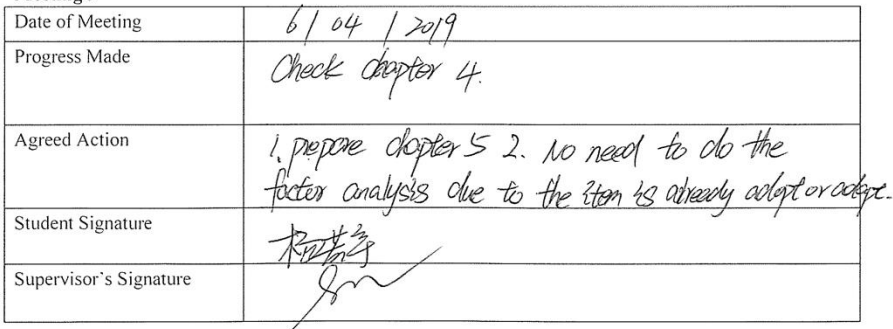 Date of Meeting 6 / 04 / 2019
Progress Made Check chapter 4.
Agreed Action 1. prepare chapter 5 2. No need to do the
factor analysis due to the item is already adopt or adapt.
Student Signature
Supervisor's Signature